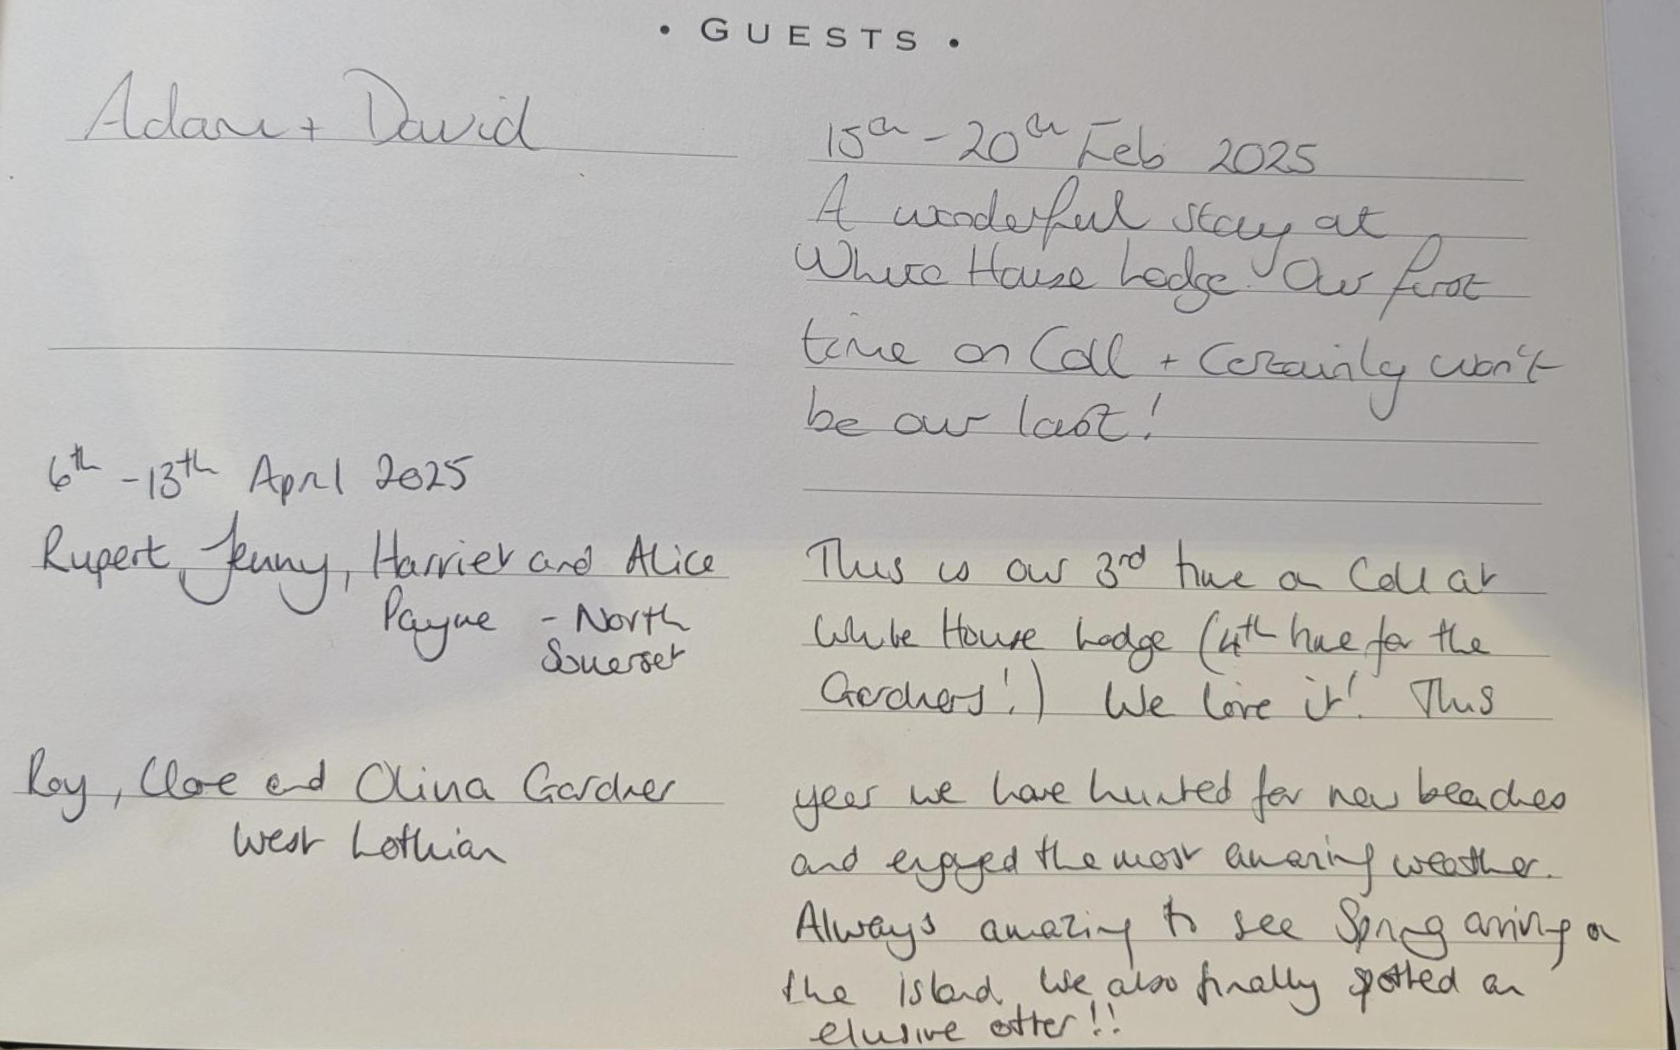 • GUESTS •
Adam + David
15th - 20th Feb 2025
A wonderful stay at
White House Lodge. Our first
time on Coll + Certainly won't
be our last!
6th - 13th April 2025
Rupert, Jenny, Harriet and Alice
Payne - North
Somerset
This is our 3rd time on Coll at
White House Lodge (4th time for the
Gardners!) We love it! This
Roy, Cloe and Olivia Gardner
West Lothian
year we have hunted for new beaches
and enjoyed the most amazing weather.
Always amazing to see Spring arriving on
the island. We also finally spotted an
elusive otter!!